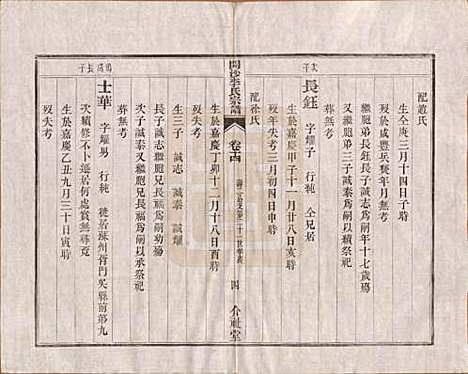 配趙氏
生全庚三月十四日子時
歿咸豐兵燹年月無考
繼胞弟長鈺長子誠志為嗣年十七歲殤
又繼胞弟三子誠泰為嗣以續祭祀
葬無考
次子
長鈺 字耀子 行純 仝兄居
生於嘉慶甲子十一月廿八日亥時
歿年失考三月初四日申時
配徐氏
開沙李氏宗譜
卷十四
四 介祉堂
生於嘉慶丁卯十二月十八日酉時
歿失考
生三子 誠志 誠泰 誠耀
長子誠志繼胞兄長福為嗣幼殤
次子誠泰又繼胞兄長福為嗣以承祭祀
葬無考
長子
士華 字耀男 行純 徙居蘇州胥門吳縣前第九
如巷內卜卦居何處無尋覓
生於嘉慶乙丑九月三十日寅時
歿失考